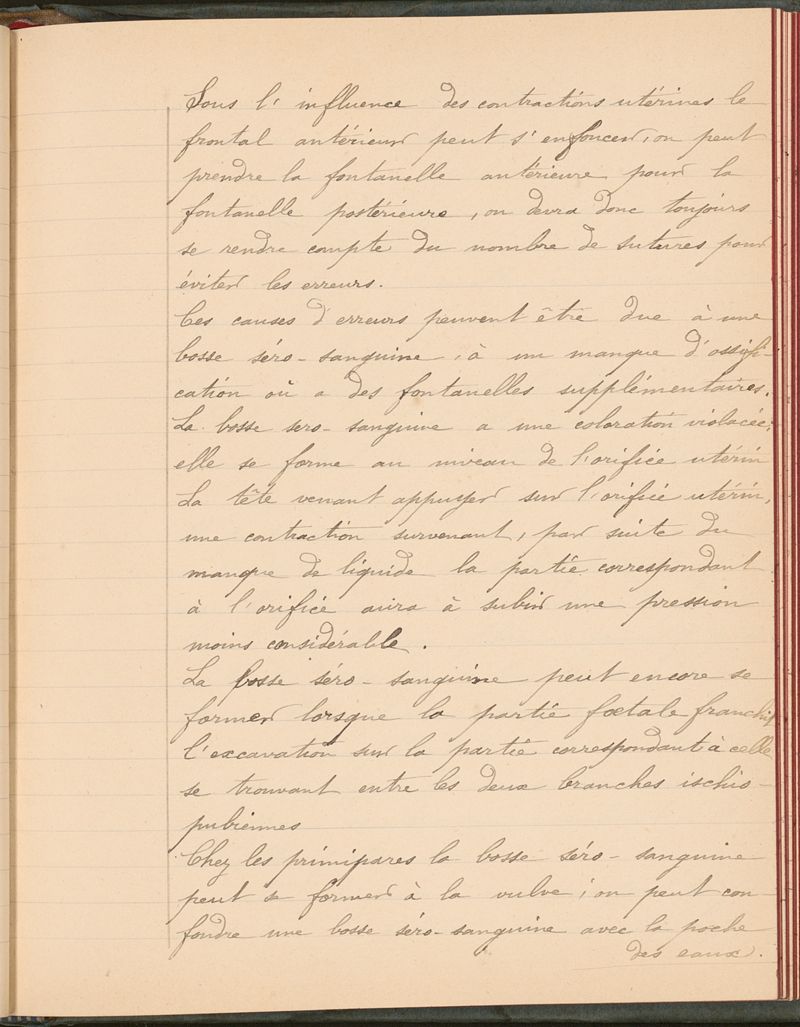 Sous l'influence des contractions utérines le
frontal antérieur peut s'enfoncer, on peut
prendre la fontanelle antérieure pour la
fontanelle postérieure, on devra donc toujours
se rendre compte du nombre de sutures pour
éviter les erreurs.
Ces causes d'erreurs peuvent être due à une
bosse séro-sanguine, à un manque d'ossifi-
cation où a des fontanelles supplémentaires.
La bosse sero-sanguine a une coloration violacée,
elle se forme au niveau de l'orifice utérin
La tête venant appuyer sur l'orifice utérin,
une contraction survenant, par suite du
manque de liquide la partie correspondant
à l'orifice aura à subir une pression
moins considérable.
La bosse séro-sanguine peut encore se
former lorsque la partie foetale franchit
l'excavation sur la partie correspondant à celle
se trouvant entre les deux branches ischio-
pubiennes
Chez les primipares la bosse séro-sanguine
peut se former à la vulve ; on peut con-
fondre une bosse séro-sanguine avec la poche
des eaux.